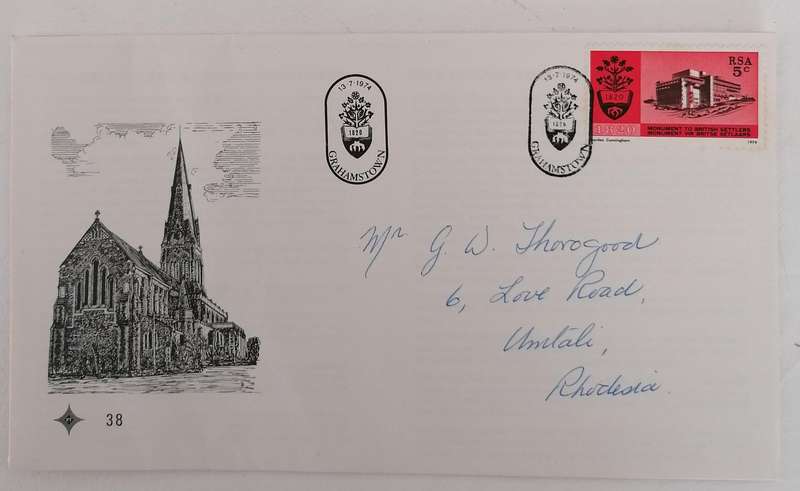 13·7·1974
1820
GRAHAMSTOWN
13·7·1974
1820
GRAHAMSTOWN
RSA
5c
1820
1820
MONUMENT TO BRITISH SETTLERS
MONUMENT VIR BRITSE SETLAARS
1974
Mr G. W. Thorogood
6, Love Road,
Umtali,
Rhodesia.
38